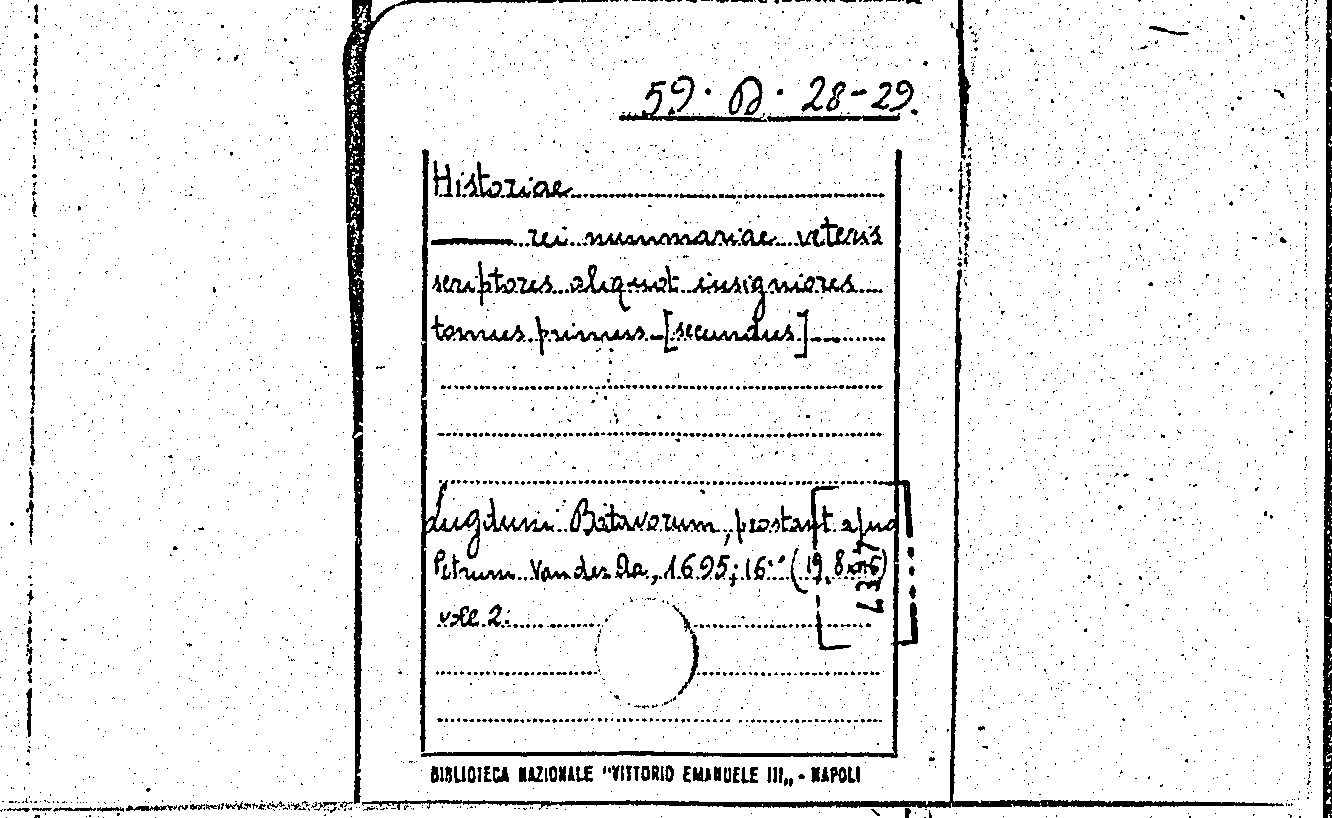 59. D. 28-29.
Historiae
——— rei nummariae veteris
scriptores aliquot insigniores
tomus primus [secundus]
Lugduni Batavorum, prostant apud
Petrum Vander Aa, 1695; 16° (19,8 cm)
voll 2.
BIBLIOTECA NAZIONALE "VITTORIO EMANUELE III„ - NAPOLI